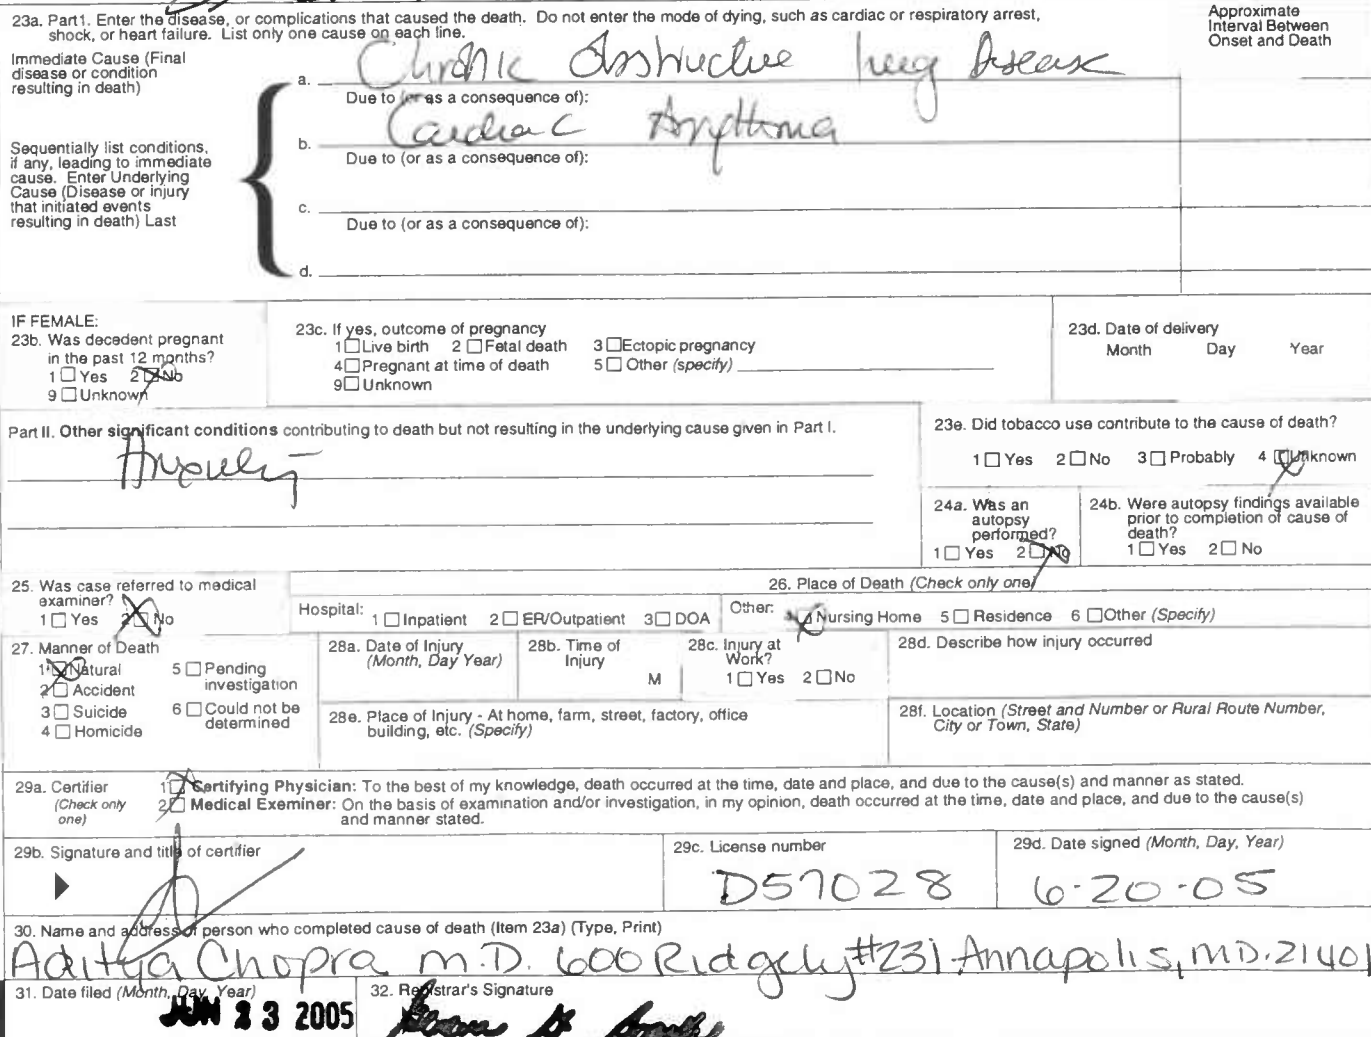 23a. Part1. Enter the disease, or complications that caused the death. Do not enter the mode of dying, such as cardiac or respiratory arrest, shock, or heart failure. List only one cause on each line.
Approximate
Interval Between
Onset and Death
Immediate Cause (Final
disease or condition
resulting in death)
a. Chronic Obstructive lung Disease
Due to (or as a consequence of):
b. Cardiac Arrythma
Due to (or as a consequence of):
Sequentially list conditions,
if any, leading to immediate
cause. Enter Underlying
Cause (Disease or injury
that initiated events
resulting in death) Last
c.
Due to (or as a consequence of):
d.
IF FEMALE:
23b. Was decedent pregnant
in the past 12 months?
1 Yes 2 No
9 Unknown
23c. If yes, outcome of pregnancy
1 Live birth 2 Fetal death 3 Ectopic pregnancy
4 Pregnant at time of death 5 Other (specify)
9 Unknown
23d. Date of delivery
Month Day Year
Part II. Other significant conditions contributing to death but not resulting in the underlying cause given in Part I.
23e. Did tobacco use contribute to the cause of death?
1 Yes 2 No 3 Probably 4 Unknown
24a. Was an
autopsy
performed?
1 Yes 2 No
24b. Were autopsy findings available
prior to completion of cause of
death?
1 Yes 2 No
25. Was case referred to medical
examiner?
1 Yes 2 No
26. Place of Death (Check only one)
Hospital: 1 Inpatient 2 ER/Outpatient 3 DOA Other: Nursing Home 5 Residence 6 Other (Specify)
27. Manner of Death
1 Natural 5 Pending
investigation
2 Accident
3 Suicide 6 Could not be
determined
4 Homicide
28a. Date of Injury
(Month, Day Year)
28b. Time of
Injury
M
28c. Injury at
Work?
1 Yes 2 No
28d. Describe how injury occurred
28e. Place of Injury - At home, farm, street, factory, office
building, etc. (Specify)
28f. Location (Street and Number or Rural Route Number,
City or Town, State)
29a. Certifier
(Check only
one)
1 Certifying Physician: To the best of my knowledge, death occurred at the time, date and place, and due to the cause(s) and manner as stated.
2 Medical Examiner: On the basis of examination and/or investigation, in my opinion, death occurred at the time, date and place, and due to the cause(s)
and manner stated.
29b. Signature and title of certifier
29c. License number
D57028
29d. Date signed (Month, Day, Year)
6-20-05
30. Name and address of person who completed cause of death (Item 23a) (Type, Print)
Aditya Chopra M.D. 600 Ridgely #231 Annapolis, MD. 21401
31. Date filed (Month, Day, Year)
JUN 23 2005
32. Registrar's Signature